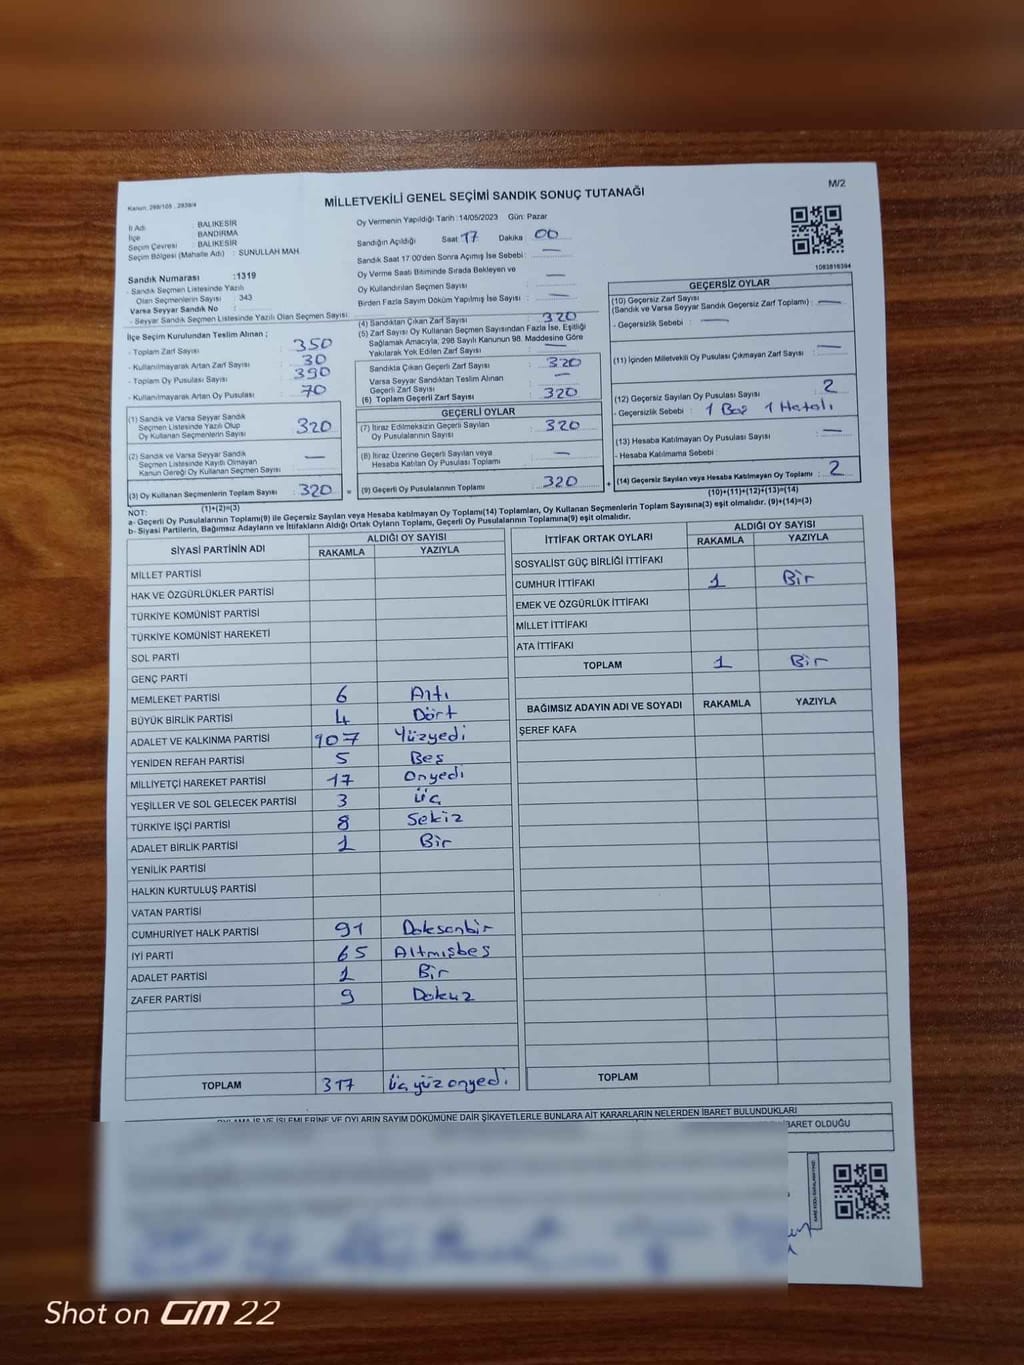 M/2
MİLLETVEKİLİ GENEL SEÇİMİ SANDIK SONUÇ TUTANAĞI
Kanun. 298/105 , 2839/4
İl Adı BALIKESİR
İlçe BANDIRMA
Seçim Çevresi : BALIKESİR
Seçim Bölgesi (Mahalle Adı) : SUNULLAH MAH
Sandık Numarası :1319
- Sandık Seçmen Listesinde Yazılı
Olan Seçmenlerin Sayısı : 343
Varsa Seyyar Sandık No :
- Seyyar Sandık Seçmen Listesinde Yazılı Olan Seçmen Sayısı:
İlçe Seçim Kurulundan Teslim Alınan ;
- Toplam Zarf Sayısı : 350
- Kullanılmayarak Artan Zarf Sayısı : 30
- Toplam Oy Pusulası Sayısı : 390
- Kullanılmayarak Artan Oy Pusulası : 70
(1) Sandık ve Varsa Seyyar Sandık
Seçmen Listesinde Yazılı Olup
Oy Kullanan Seçmenlerin Sayısı : 320
(2) Sandık ve Varsa Seyyar Sandık
Seçmen Listesinde Kayıtlı Olmayan
Kanun Gereği Oy Kullanan Seçmen Sayısı : —
(3) Oy Kullanan Seçmenlerin Toplam Sayısı : 320
(1)+(2)=(3)
Oy Vermenin Yapıldığı Tarih :14/05/2023 Gün: Pazar
Sandığın Açıldığı Saat :17 Dakika : 00
Sandık Saat 17:00'den Sonra Açımış İse Sebebi : —
Oy Verme Saati Bitiminde Sırada Bekleyen ve
Oy Kullandırılan Seçmen Sayısı : —
Birden Fazla Sayım Döküm Yapılmış İse Sayısı : —
(4) Sandıktan Çıkan Zarf Sayısı : 320
(5) Zarf Sayısı Oy Kullanan Seçmen Sayısından Fazla İse, Eşitliği
Sağlamak Amacıyla, 298 Sayılı Kanunun 98. Maddesine Göre
Yakılarak Yok Edilen Zarf Sayısı : —
Sandıkta Çıkan Geçerli Zarf Sayısı : 320
Varsa Seyyar Sandıktan Teslim Alınan
Geçerli Zarf Sayısı : —
(6) Toplam Geçerli Zarf Sayısı : 320
GEÇERLİ OYLAR
(7) İtiraz Edilmeksizin Geçerli Sayılan
Oy Pusulalarının Sayısı : 320
(8) İtiraz Üzerine Geçerli Sayılan veya
Hesaba Katılan Oy Pusulası Toplamı : —
= (9) Geçerli Oy Pusulalarının Toplamı : 320
1083816394
GEÇERSİZ OYLAR
(10) Geçersiz Zarf Sayısı
(Sandık ve Varsa Seyyar Sandık Geçersiz Zarf Toplamı) : —
- Geçersizlik Sebebi : —
(11) İçinden Milletvekili Oy Pusulası Çıkmayan Zarf Sayısı : —
(12) Geçersiz Sayılan Oy Pusulası Sayısı : 2
- Geçersizlik Sebebi : 1 Boş 1 Hatalı
(13) Hesaba Katılmayan Oy Pusulası Sayısı : —
- Hesaba Katılmama Sebebi :
+ (14) Geçersiz Sayılan veya Hesaba Katılmayan Oy Toplamı : 2
(10)+(11)+(12)+(13)=(14)
NOT:
a- Geçerli Oy Pusulalarının Toplamı(9) ile Geçersiz Sayılan veya Hesaba katılmayan Oy Toplamı(14) Toplamları, Oy Kullanan Seçmenlerin Toplam Sayısına(3) eşit olmalıdır. (9)+(14)=(3)
b- Siyasi Partilerin, Bağımsız Adayların ve İttifakların Aldığı Ortak Oyların Toplamı, Geçerli Oy Pusulalarının Toplamına(9) eşit olmalıdır.
SİYASİ PARTİNİN ADI ALDIĞI OY SAYISI
RAKAMLA YAZIYLA
MİLLET PARTİSİ
HAK VE ÖZGÜRLÜKLER PARTİSİ
TÜRKİYE KOMÜNİST PARTİSİ
TÜRKİYE KOMÜNİST HAREKETİ
SOL PARTİ
GENÇ PARTİ
MEMLEKET PARTİSİ 6 Altı
BÜYÜK BİRLİK PARTİSİ 4 Dört
ADALET VE KALKINMA PARTİSİ 107 Yüzyedi
YENİDEN REFAH PARTİSİ 5 Beş
MİLLİYETÇİ HAREKET PARTİSİ 17 Onyedi
YEŞİLLER VE SOL GELECEK PARTİSİ 3 Üç
TÜRKİYE İŞÇİ PARTİSİ 8 Sekiz
ADALET BİRLİK PARTİSİ 1 Bir
YENİLİK PARTİSİ
HALKIN KURTULUŞ PARTİSİ
VATAN PARTİSİ
CUMHURİYET HALK PARTİSİ 91 Doksanbir
İYİ PARTİ 65 Altmışbeş
ADALET PARTİSİ 1 Bir
ZAFER PARTİSİ 9 Dokuz
TOPLAM 317 Üçyüzonyedi
İTTİFAK ORTAK OYLARI ALDIĞI OY SAYISI
RAKAMLA YAZIYLA
SOSYALİST GÜÇ BİRLİĞİ İTTİFAKI
CUMHUR İTTİFAKI 1 Bir
EMEK VE ÖZGÜRLÜK İTTİFAKI
MİLLET İTTİFAKI
ATA İTTİFAKI
TOPLAM 1 Bir
BAĞIMSIZ ADAYIN ADI VE SOYADI RAKAMLA YAZIYLA
ŞEREF KAFA
TOPLAM
İŞ VE İŞLEMLERİNE VE OYLARIN SAYIM DÖKÜMÜNE DAİR ŞİKAYETLERLE BUNLARA AİT KARARLARIN NELERDEN İBARET BULUNDUKLARI
İBARET OLDUĞU
Shot on GM 22